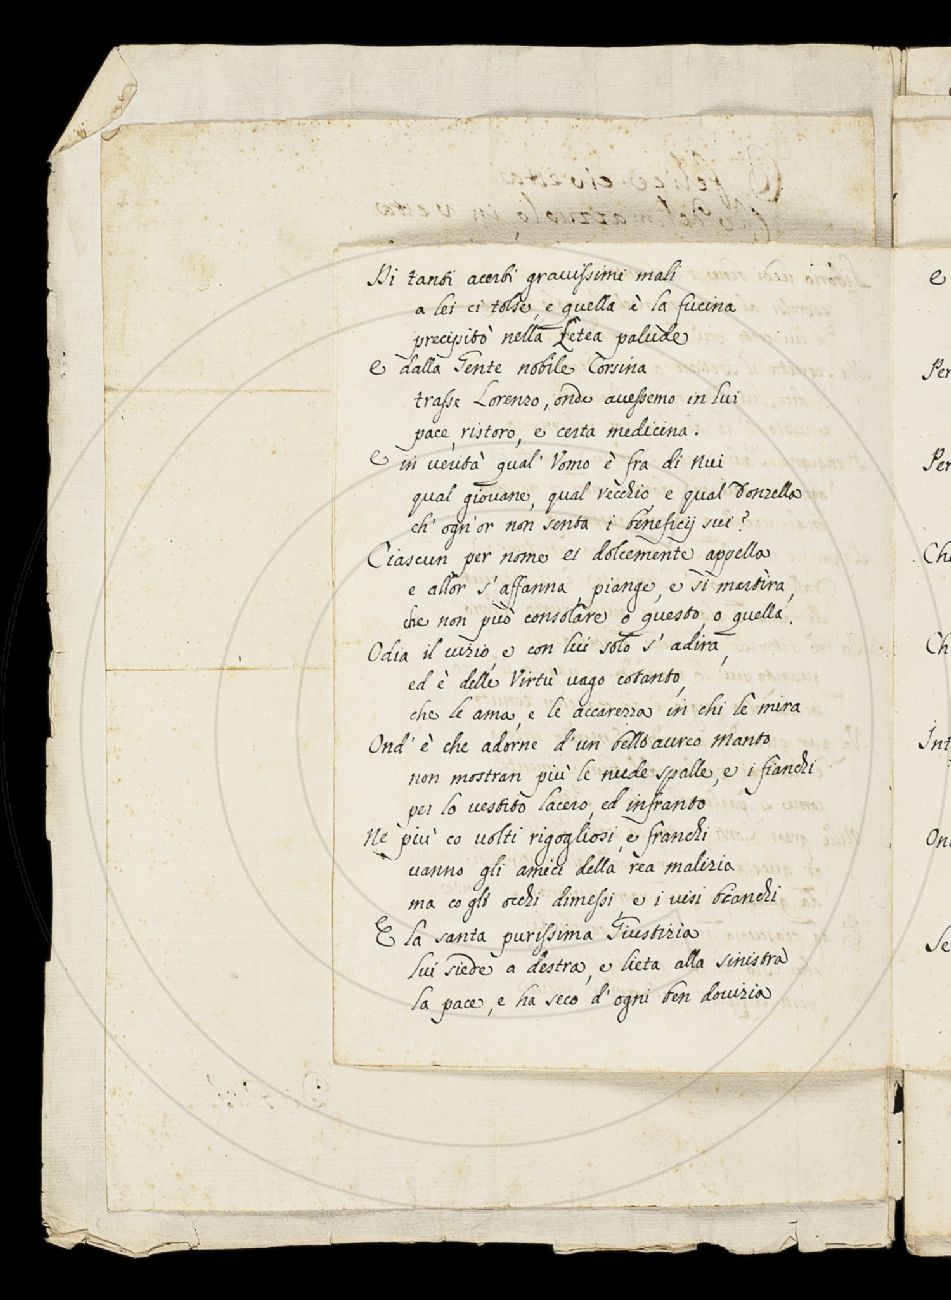 Di tanti acerbi gravissimi mali
a lei ci tolse, e quella è la fucina
precipitò nella Letea palude
E dalla Gente nobile Corsina
trasse Lorenzo, onde avessemo in lui
pace, ristoro, e certa medicina.
E in verità qual' Vomo è fra di nui
qual giovane, qual vecchio, e qual Donzella
ch' ogn'or non senta i beneficij sui?
Ciascun per nome ei dolcemente appella
e allor s' affanna, piange, e si martira,
che non può consolare o questo, o quella.
Odia il vizio, e con lui solo s' adira,
ed è delle Virtù vago cotanto,
che le ama, e le accarezza in chi le mira
Ond' è che adorne d' un bello aureo Manto
non mostran più le nude spalle, e i fianchi
per lo vestito lacero, ed infranto
Nè più co volti rigogliosi, e franchi
vanno gli amici della rea malizia
ma co gli occhi dimessi, e i visi bianchi
E la santa purissima Giustizia
lui siede a destra, e lieta alla sinistra
la pace, e ha seco d' ogni ben dovizia
e
Per
Per
Che
Ch
Int
Ond
Se